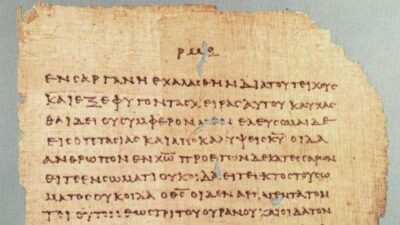 ΕΝ ϹΑΡΓΑΝΗ ΕΧΑΛΑϹΘΗΝ ΔΙΑ ΤΟΥ ΤΕΙΧΟΥϹ
ΚΑΙ ΕΞΕΦΥΓΟΝ ΤΑϹ ΧΕΙΡΑϹ ΑΥΤΟΥ ΚΑΥΧΑϹ
ΘΑΙ ΔΕΙ ΟΥ ϹΥΜΦΕΡΟΝ ΜΕΝ ΕΛΕΥϹΟΜΑΙ ΔΕ
ΕΙϹ ΟΠΤΑϹΙΑϹ ΚΑΙ ΑΠΟΚΑΛΥΨΕΙϹ Κ̅Υ̅ ΟΙΔΑ
ΑΝΘΡΩΠΟΝ ΕΝ Χ̅Ω̅ ΠΡΟ ΕΤΩΝ ΔΕΚΑΤΕϹϹΑΡΩΝ
ΕΙΤΕ ΕΝ ϹΩΜΑΤΙ ΟΥΚ ΟΙΔΑ ΕΙΤΕ ΕΚΤΟϹ ΤΟΥ ϹΩ
ΜΑΤΟϹ ΟΥΚ ΟΙΔΑ Ο Θ̅Ϲ̅ ΟΙΔΕΝ ΤΟΝ
ΕΩϹ ΤΡΙΤΟΥ ΟΥΡΑΝΟΥ ΚΑΙ ΟΙΔΑ ΤΟΝ